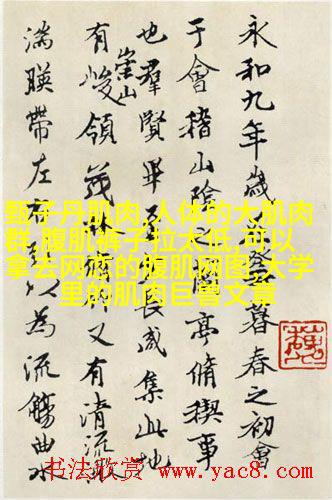 永和九年歲在癸丑暮春之初會
于會稽山陰之蘭亭脩稧事
也羣賢畢至少長咸集此地
有崇山峻領茂林脩竹又有清流激
湍暎帶左右引以為流觴曲水
甄子丹肌肉,人体的大肌肉
群,腹肌裤子拉太低,可以
拿去网恋的腹肌网图,大学
里的肌肉巨兽文章
书法欣赏 www.yac8.com